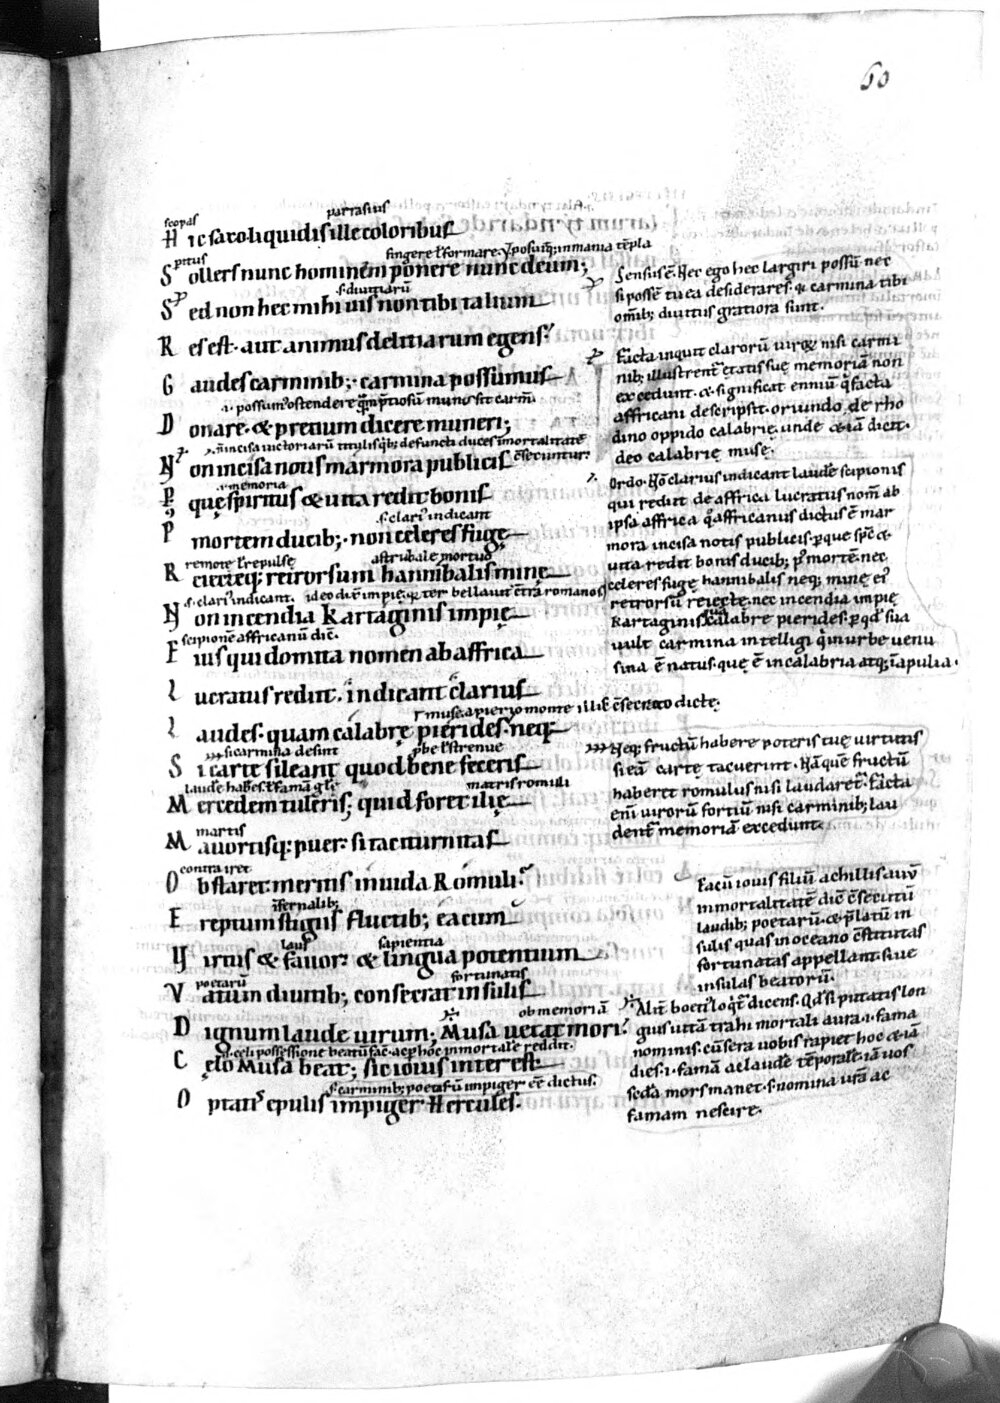 60
scopas parrasius
Hic saxo· liquidis ille coloribus
pitus fingere ł formare· ł posuitq; inmania tēpla
Sollers nunc hominem ponere nunc deum;
s· diuitiarū
Sed non hec mihi uis non tibi talium
Res est· aut animus delitiarum egens·
Gaudes carminib;· carmina possumus
.i· possumꝰ ostendere qm̄ p̄tiosum munꝰ sit carm̄·
Donare· & pretium dicere muneri;
Non incisa notis marmora publicis
.i· memoria
Per quę spiritus & uita redit bonis
s· clariꝰ indicant
Post mortem ducib;· non celeres fugę
remote ł repulse astrubale mortuo
Reiecteq; retrorsum hannibalis minę
s· clariꝰ indicant·
Non incendia Kartaginis impię
scipionē affricanū dic̄·
Eius qui domita nomen ab affrica
Lucratus rediit· indicant clarius
Laudes· quam calabrę pierides· neq;
s· carmina desint ł strenue
Si carte sileant quod bene feceris
laudē habes· ł famā matris romuli
Mercedem tuleris; quid foret ilię
martis
Mauortisq; puer· si taciturnitas
contra iret
Obstaret meritis inuida Romuli·
īfernalib;
Ereptum stigiis fluctib; eacum
laus sapientia
Virtus & fauor· & lingua potentium
poetarū fortunatis
Vatum diuitib; consecrat insulis
ob memoriā
Dignum laude uirum; Musa uetat mori·
Cęlo Musa beat; sic iouis interest
s· carminib; poetarū impiger ēē dictus·
Optatis epulis impiger Hercules·
Sensus ē· Nec ego hec largiri possū nec
si possē tu ea desiderares· & carmina tibi
omīb; diuitiis gratiora sunt·
Facta inquit clarorū uirorū nisi carmi
nib; illustrent̄ etatis suę memoriā non
excedunt· & significat enniū q̄ facta
affricani descripsit· oriundo de rho
dino oppido calabrię· unde & iā dicit·
deo calabrię musę·
Ordo· Nō clarius indicant laudē scipionis
qui rediit de affrica lucratus nom̄ ab
ipsa affrica q̄ affricanus dictus ē mar
mora incisa notis publicis· per que sp̄c &
uita redit bonis ducib; p̄ mortē· nec
celeres fugę hannibalis neq; minę eiꝰ
retrorsū reiecte· nec incendia impię
Kartaginis· quā calabre pierides· per qd̄ sua
uult carmina intelligi q̄ in urbe uenu
sina ē natus· que ē in calabria atq; ī apulia·
Neq; fructū habere poteris tuę uirtutis
si eā carte tacuerint· Nā que fructū
haberet romulus nisi laudaret̄· facta
eni uirorū fortiū nisi carminib; lau
dent̄ memoriā excedunt·
Eacū iouis filiū achillis auū
inmortalitatē dic̄
laudib; poetarū· & p̄latū in
sulis quas in oceano c̄stitutas
fortunatas appellant siue
insulas beatorū·
Alit̄ boetiꝰ loqt̄ dicens· Qd̄ si putatis lon
gius uitā trahi mortalis aura .i· fama
nominis· cū sera uobis rapiet hoc & iā
dies· .i· famā ac laude tēporale· iā uos
secda mors manet· s· nomina ur̄a ac
famam nescire·